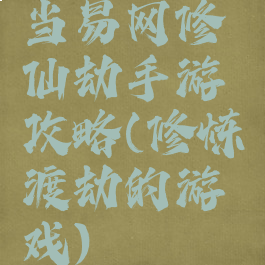 当易网修
仙劫手游
攻略(修炼
渡劫的游
戏)